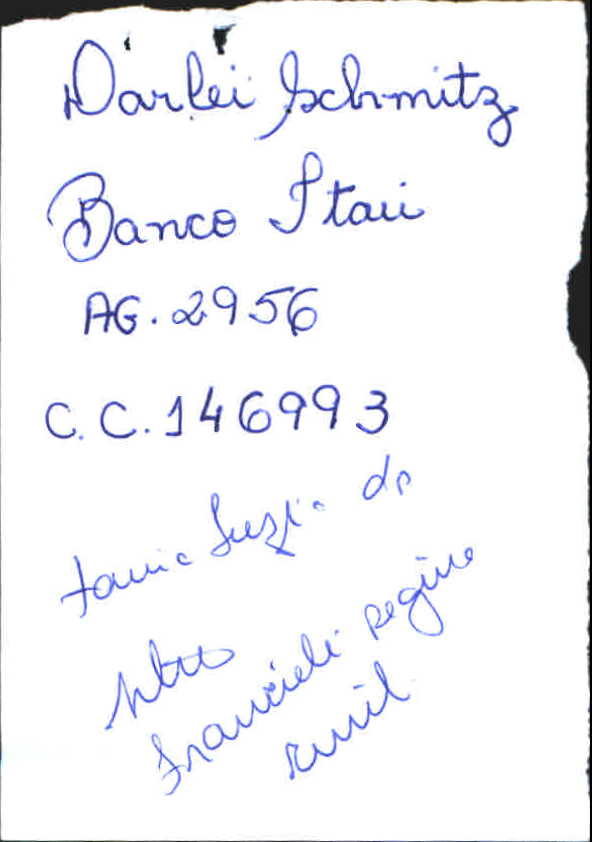 Darlei Schmitz
Banco Itaú
AG. 2956
C.C. 146993
Tania Luzia da
Francieli Regina